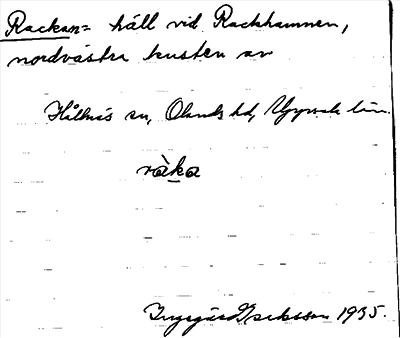 Rackan = häll vid Rackhamnen,
nordvästra kusten av
Hållnäs sn, Olands hd, Uppsala län.
ràka
Ingegärd Eriksson 1935.